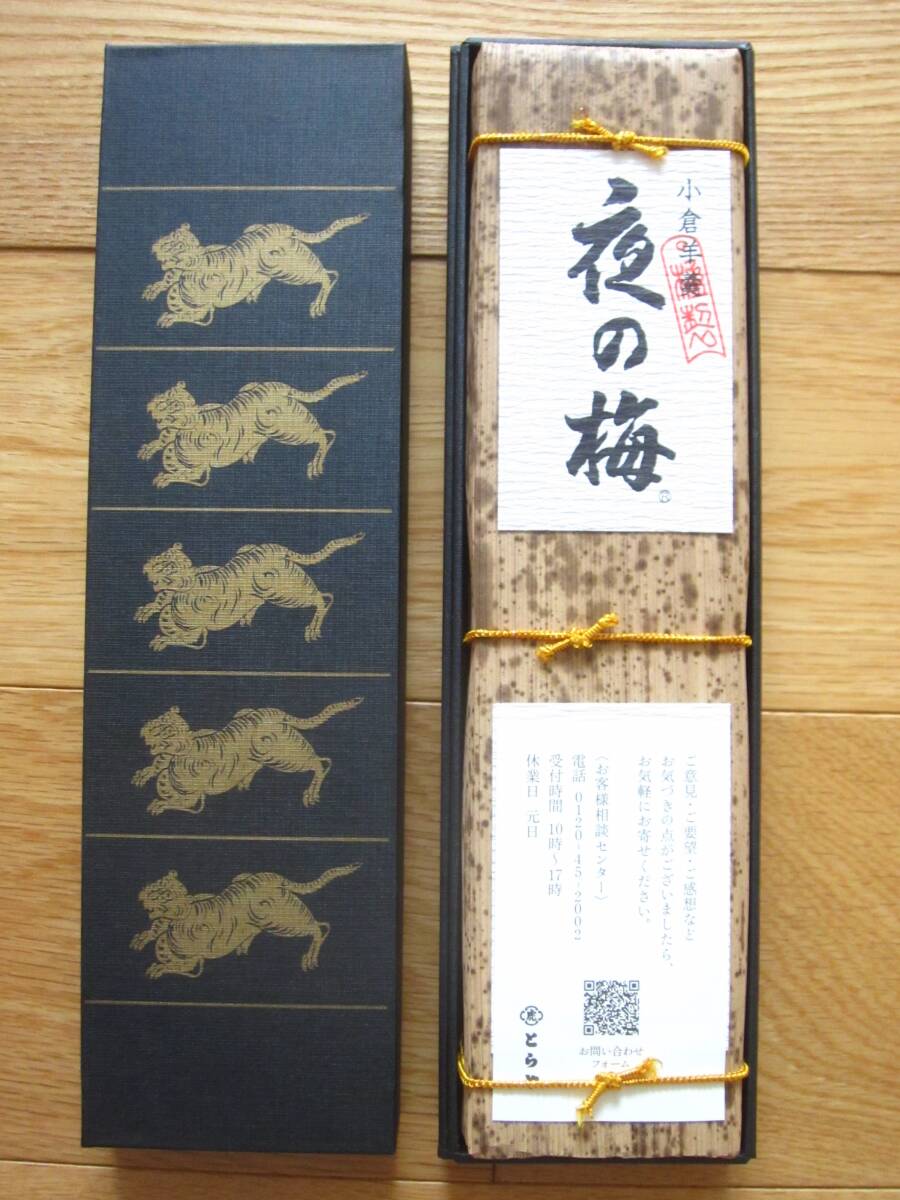 小倉羊羹
夜の梅
ご意見・ご要望・ご感想など
お気づきの点がございましたら、
お気軽にお寄せください。
〈お客様相談センター〉
電話 0120-45-2002
受付時間 10時〜17時
休業日 元日
お問い合わせ
フォーム
虎 とら